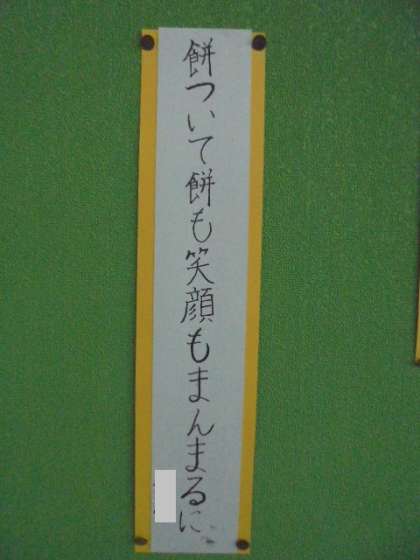 餅ついて餅も笑顔もまんまるに